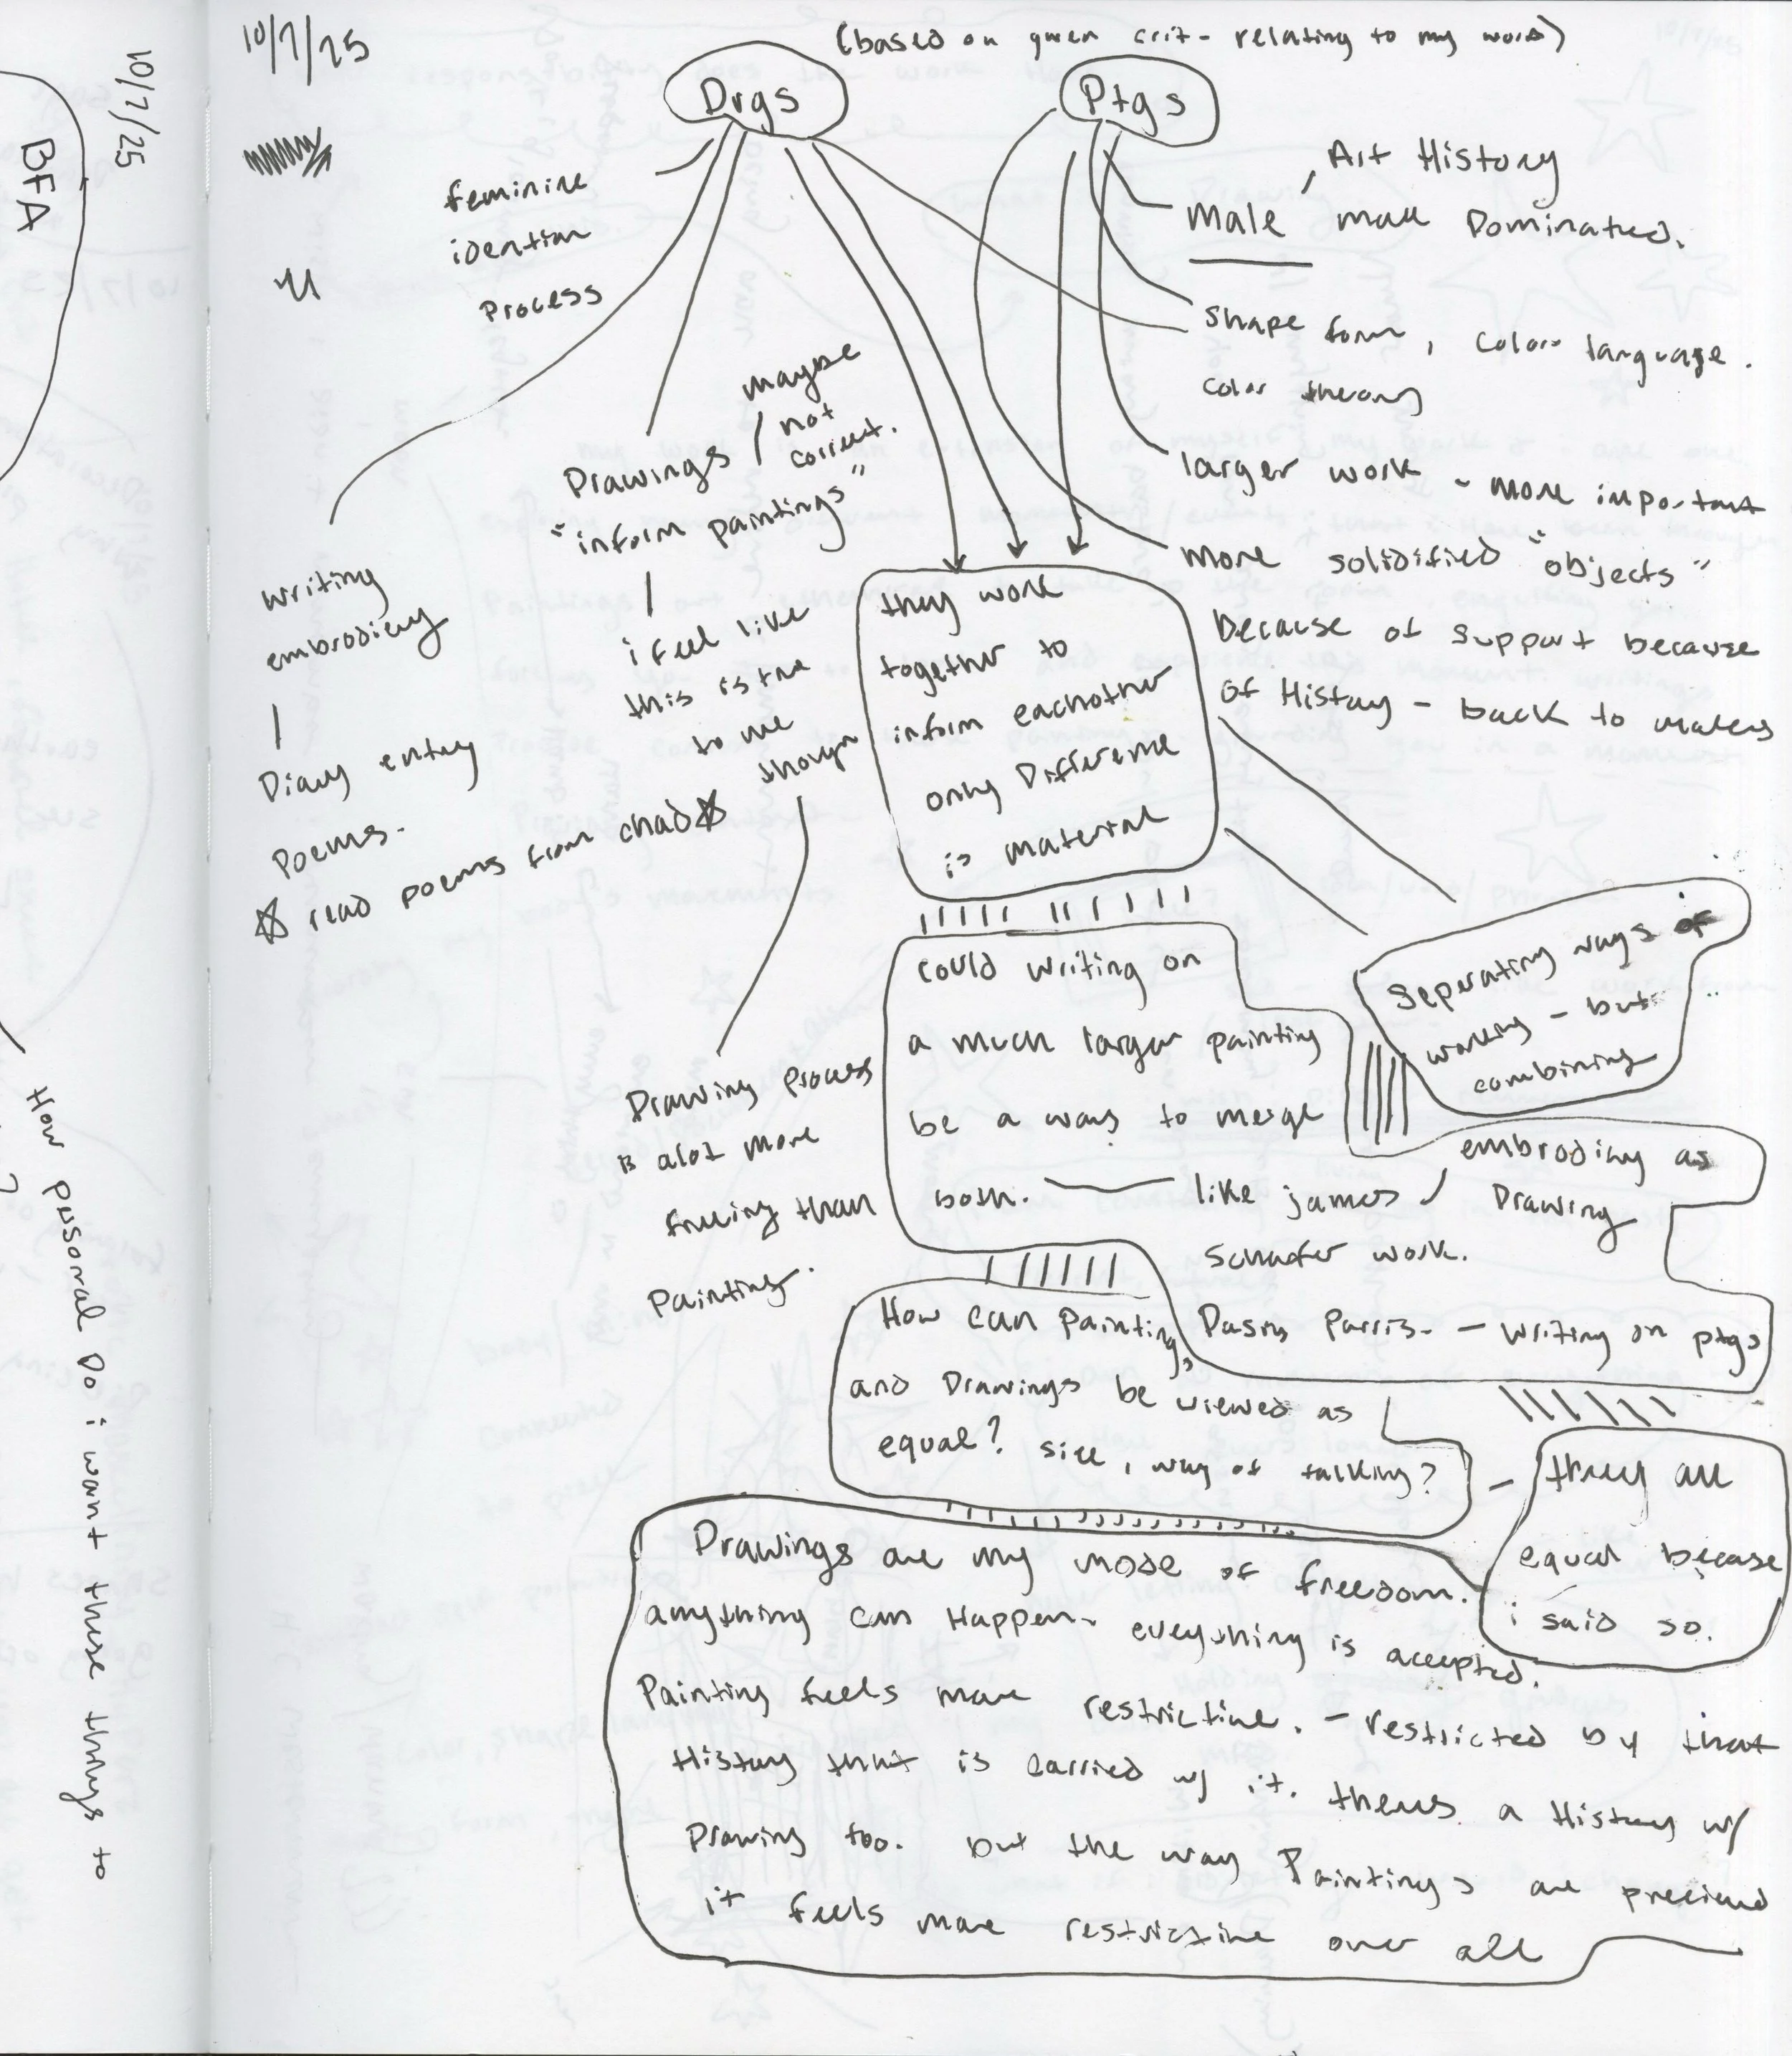 10/7/25
BFA
How personal Do i want these things to
10/7/25
(based on crit - relating to my work)
Drgs
Ptgs
feminine
Process
Art History
male Dominated.
shape form, color language.
color theory
larger work - more important
more solidified "objects"
Because of support because
of History - back to makers
maybe
not
correct.
Drawings /
"inform paintings"
i feel like
this is true
to me
though
writing
embrodiery
Diary entry
Poems.
☆ read poems from chad ☆
they work
together to
inform eachother
only Difference
is material
Seperating ways of
working - but
combining
could writing on
a much larger painting
be a way to merge
both. — like james /
schafer work.
embrodiery as
Drawing
Parris - writing on ptgs
Drawing process
is alot more
freeing than
painting.
How can paintings
and Drawings be viewed as
equal? size, way of talking?
- they are
equal because
i said so.
Drawings are my mode of freedom.
anything can Happen - everything is accepted.
Painting feels more restrictive. - restricted by that
History that is carried w/ it. theres a History w/
Drawing too. but the way Paintings are
it feels more restrictive over all